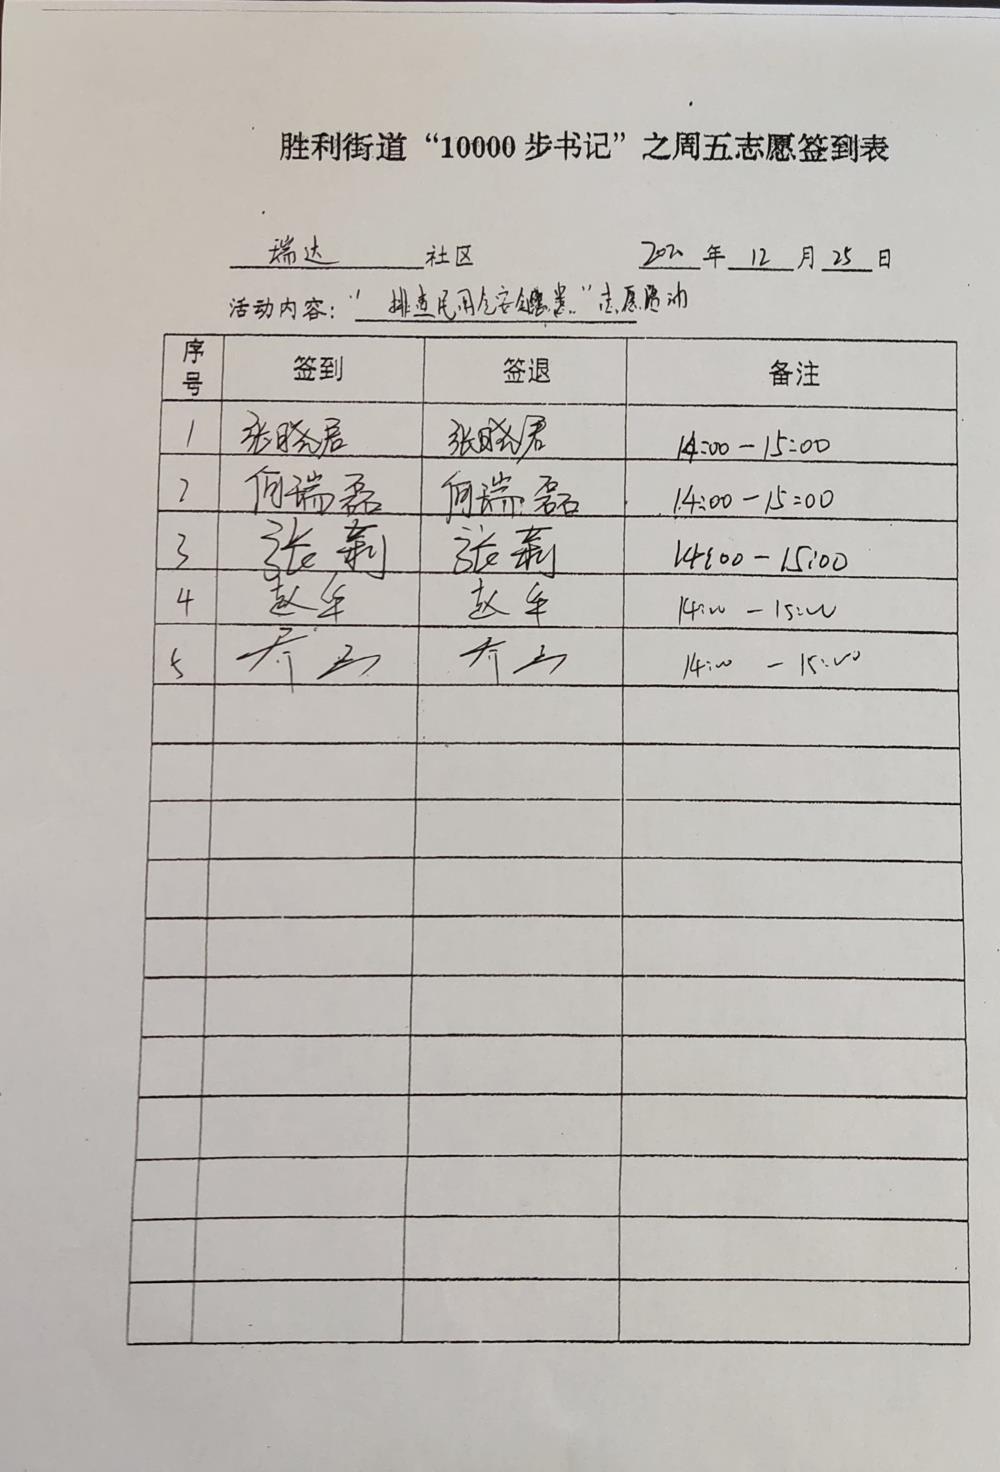 胜利街道“10000步书记”之周五志愿签到表
瑞达 社区 2020年12月25日
活动内容：“排查民用气安全隐患”志愿活动
序号 签到 签退 备注
1 张晓君 张晓君 14:00-15:00
2 何瑞磊 何瑞磊 14:00-15:00
3 张莉 张莉 14:00-15:00
4 赵 赵 14:00-15:00
5 乔 乔 14:00-15:00